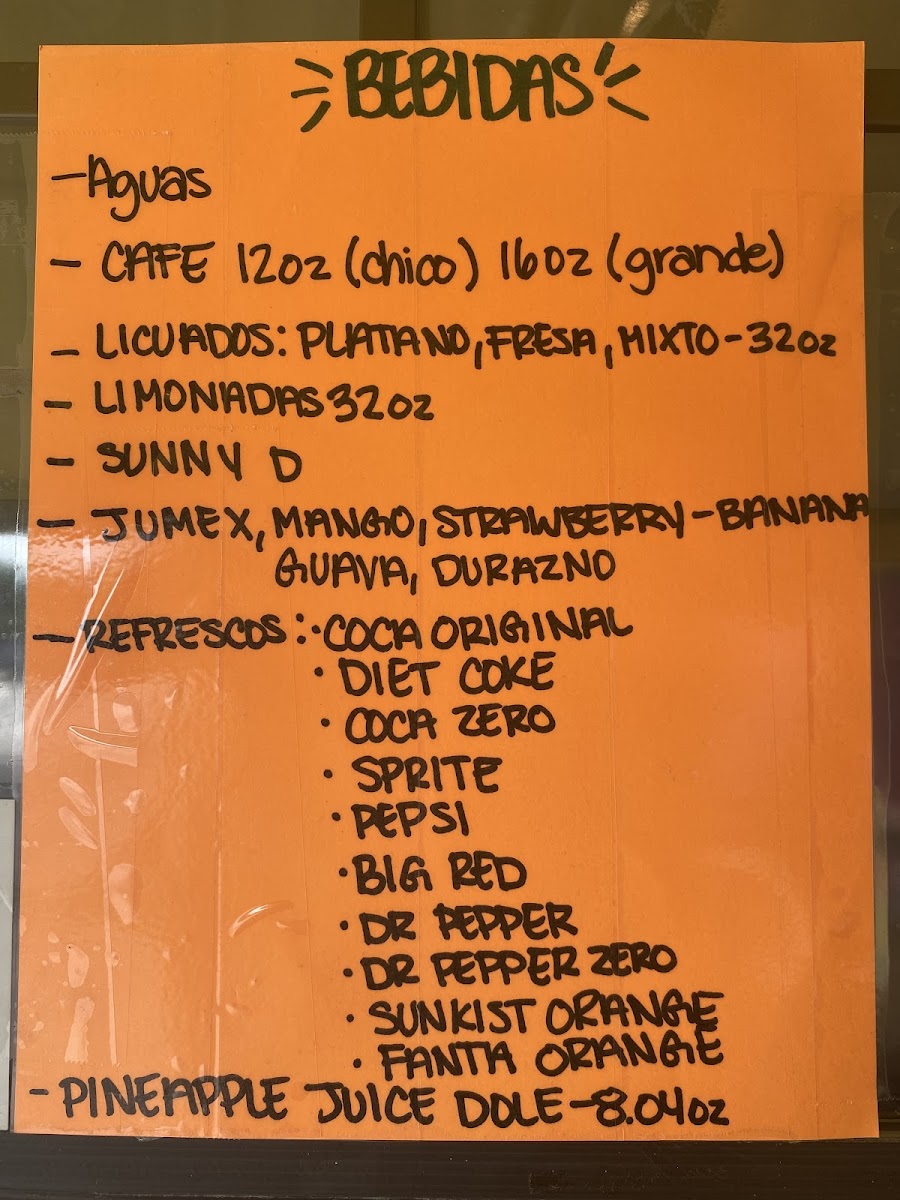 BEBIDAS
- Aguas
- CAFE 12oz (chico) 16oz (grande)
- LICUADOS: PLATANO, FRESA, MIXTO - 32oz
- LIMONADAS 32oz
- SUNNY D
- JUMEX, MANGO, STRAWBERRY - BANANA
GUAVA, DURAZNO
- REFRESCOS: · COCA ORIGINAL
· DIET COKE
· COCA ZERO
· SPRITE
· PEPSI
· BIG RED
· DR PEPPER
· DR PEPPER ZERO
· SUNKIST ORANGE
· FANTA ORANGE
- PINEAPPLE JUICE DOLE - 8.04oz